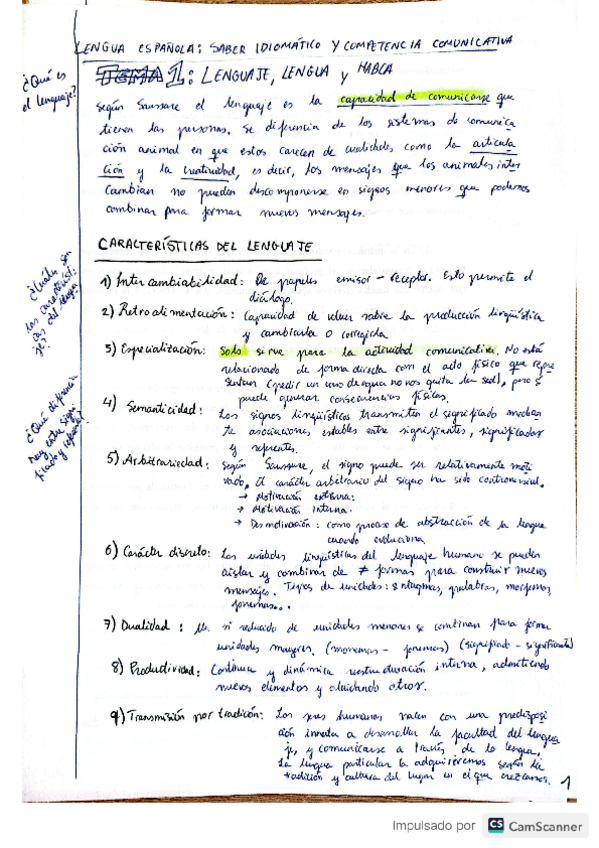 LENGUA ESPAÑOLA: SABER IDIOMÁTICO Y COMPETENCIA COMUNICATIVA
TEMA 1: LENGUAJE, LENGUA y HABLA
¿Qué es
el lenguaje?
según Saussure el lenguaje es la capacidad de comunicarse que
tienen las personas. Se diferencia de los sistemas de comunica
ción animal en que estos carecen de cualidades como la articula
ción y la creatividad, es decir, los mensajes que los animales inter
cambian no pueden descomponerse en signos menores que podemos
combinar para formar nuevos mensajes.
CARACTERÍSTICAS DEL LENGUAJE
¿Cuáles son
las caracterísi
cas del lengua
je?
1) Intercambiabilidad: De papeles emisor - receptor. Esto permite el
diálogo.
2) Retroalimentación: Capacidad de volver sobre la producción lingüística
y cambiarla o corregirla
3) Especialización: Solo sirve para la actividad comunicativa. No está
relacionado de forma directa con el acto físico que repre
sentan (pedir un vaso de agua no nos quita la sed), pero sí
puede generar consecuencias físicas.
¿Qué diferencia
hay entre signi
ficado y
4) Semanticidad: Los signos lingüísticos transmiten el significado median
te asociaciones estables entre significantes, significados
y referentes.
5) Arbitrariedad: según Saussure, el signo puede ser relativamente moti
vado. El carácter arbitrario del signo ha sido controversial.
→ Motivación externa:
→ Motivación interna:
→ Desmotivación: como proceso de abstracción de la lengua
cuando evoluciona
6) Carácter discreto: Las unidades lingüísticas del lenguaje humano se pueden
aislar y combinar de ≠ formas para construir nuevos
mensajes. Tipos de unidades: sintagmas, palabras, morfemas,
fonemas...
7) Dualidad: Un nº reducido de unidades menores se combinan para formar
unidades mayores. (monemas - fonemas) (significado - significante)
8) Productividad: Continua y dinámica reestructuración interna, admitiendo
nuevos elementos y olvidando otros.
9) Transmisión por tradición: Los seres humanos nacen con una predisposi
ción innata a desarrollar la facultad del lengua
je, y comunicarse a través de la lengua.
La lengua particular la adquiriremos según la
tradición y cultura del lugar en el que crezcamos.
1
Impulsado por CS CamScanner